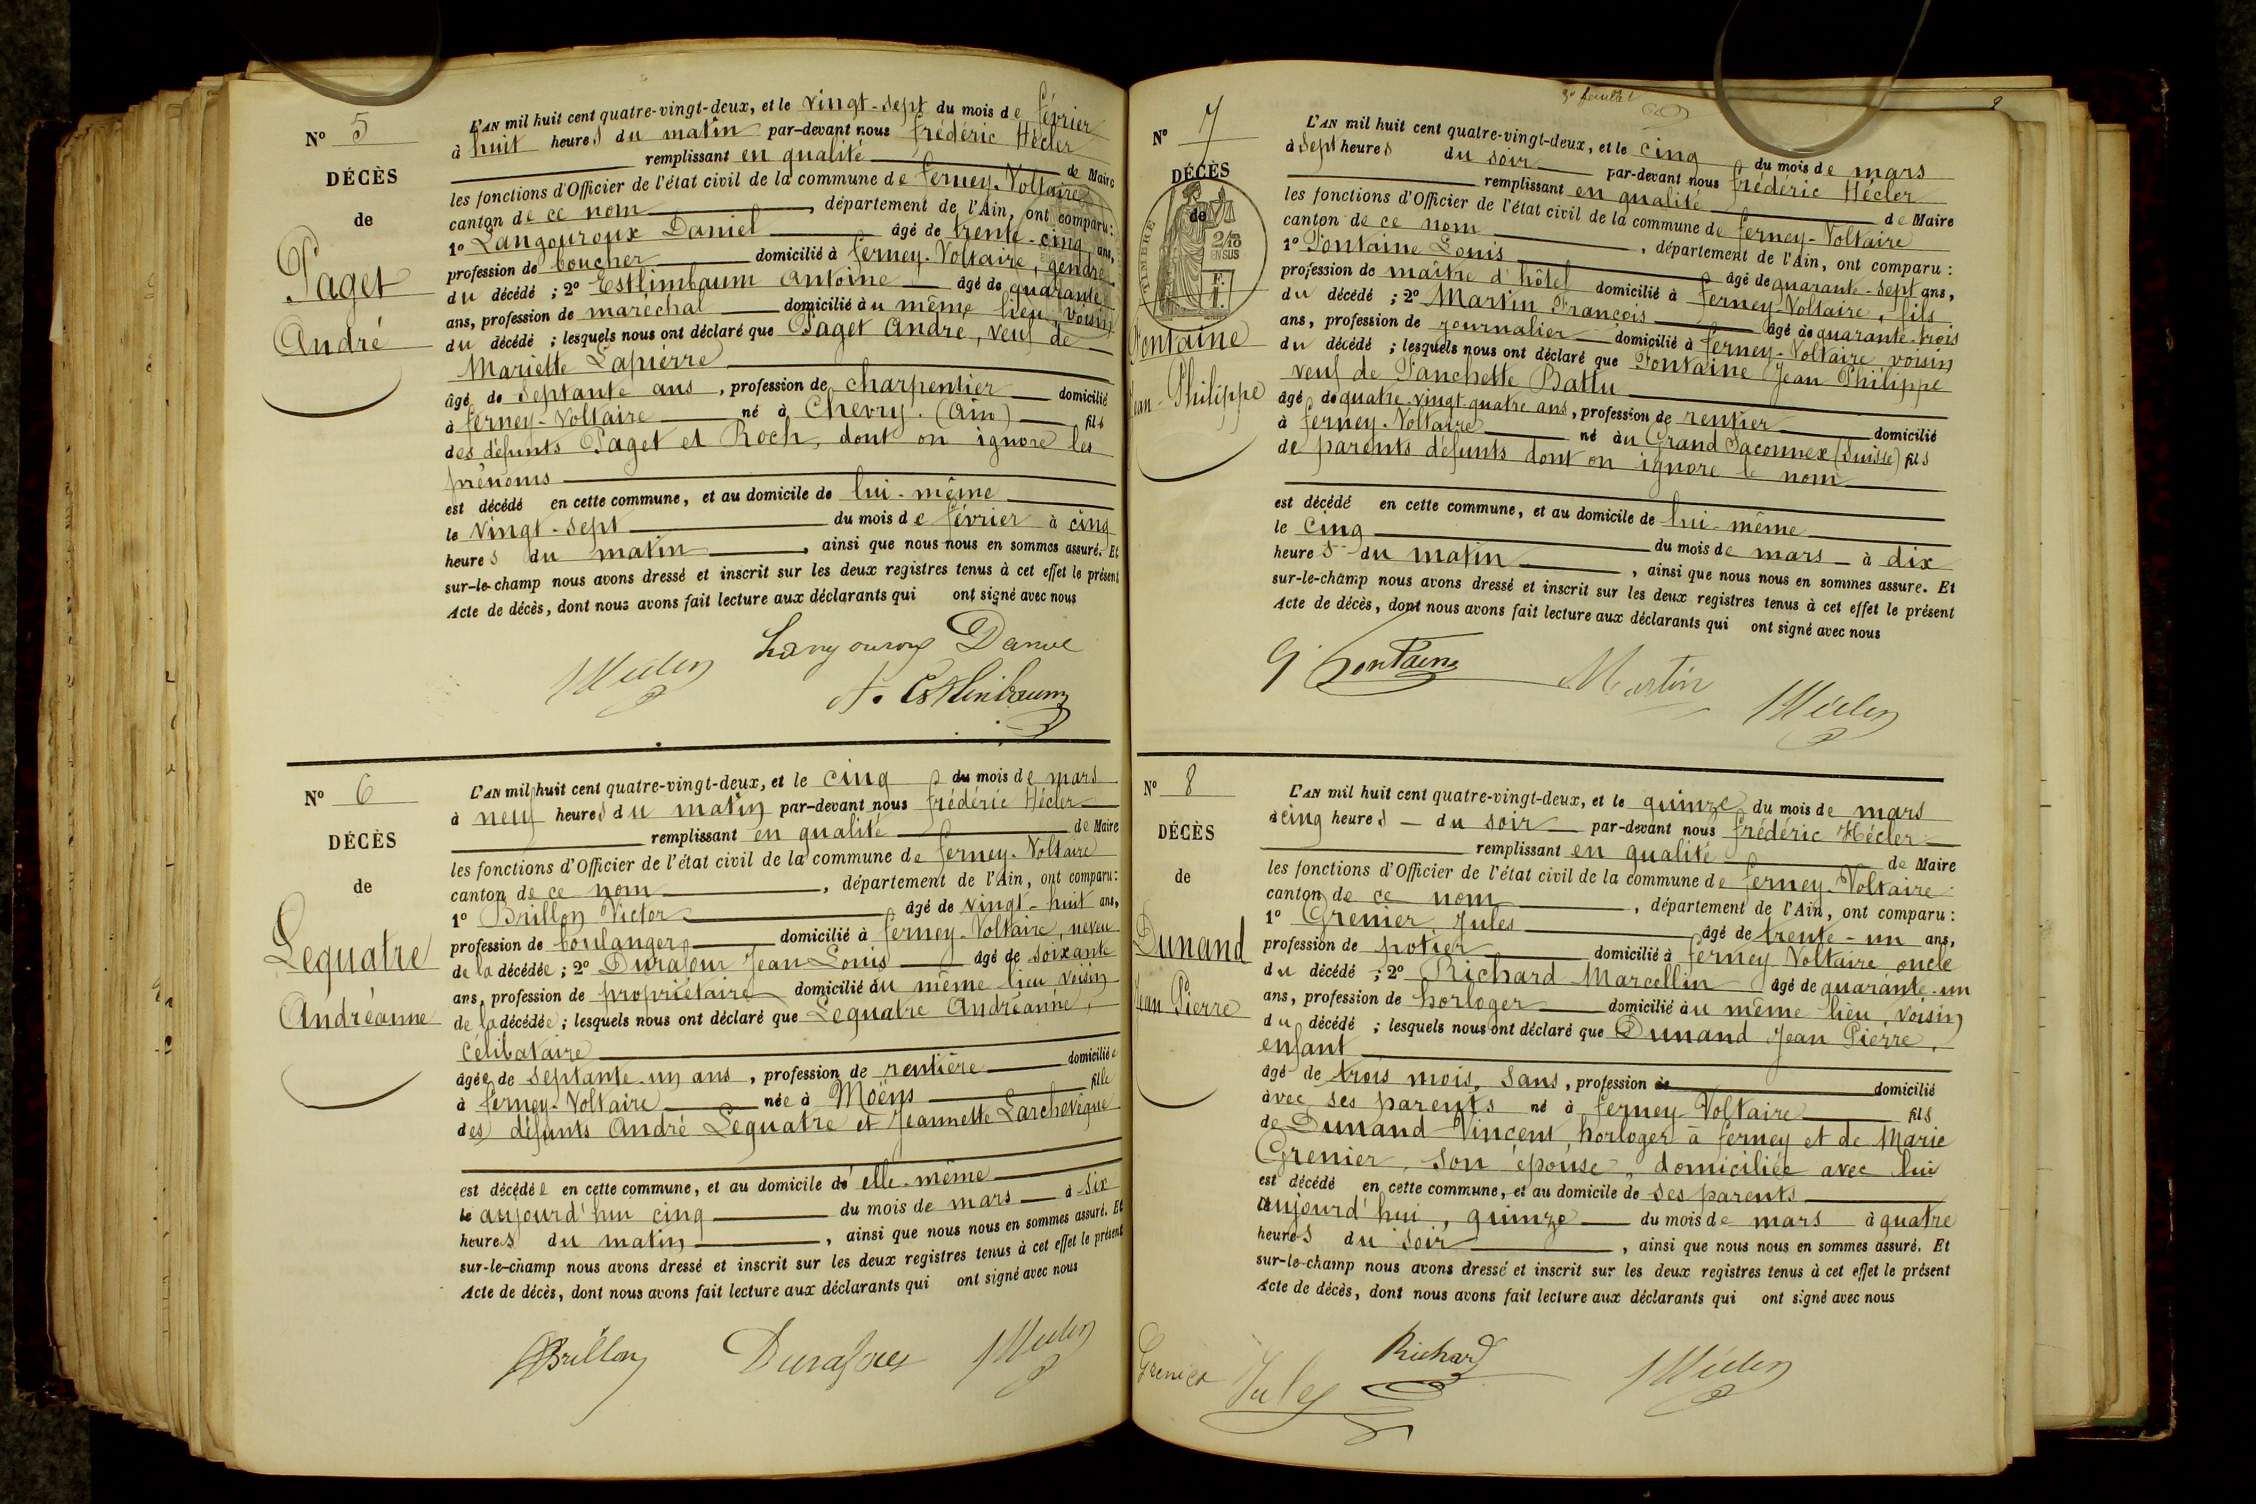 N° 5
DÉCÈS
de
Paget
André
L'AN mil huit cent quatre-vingt-deux, et le vingt-sept du mois de février
à huit heures du matin par-devant nous frédéric Hécler
remplissant en qualité de Maire
les fonctions d'Officier de l'état civil de la commune de ferney-Voltaire
canton de ce nom, département de l'Ain, ont comparu:
1° Langouroux Daniel âgé de trente-cinq ans,
profession de boucher domicilié à ferney-Voltaire, gendre
du décédé ; 2° Estlimbaum Antoine âgé de quarante
ans, profession de maréchal domicilié au même lieu voisin
du décédé ; lesquels nous ont déclaré que Paget André, veuf de
Mariette Lapierre
âgé de septante ans, profession de charpentier domicilié
à ferney-Voltaire né à Chevry. (Ain) fils
des défunts Paget et Roch, dont on ignore les
prénoms
est décédé en cette commune, et au domicile de lui-même
le vingt-sept du mois de février à cinq
heures du matin, ainsi que nous nous en sommes assuré. Et
sur-le-champ nous avons dressé et inscrit sur les deux registres tenus à cet effet le présent
Acte de décès, dont nous avons fait lecture aux déclarants qui ont signé avec nous
Langouroux Daniel
Hécler
A. Estlinbaum
N° 6
DÉCÈS
de
Lequatre
Andréanne
L'AN mil huit cent quatre-vingt-deux, et le cinq du mois de mars
à neuf heures du matin par-devant nous frédéric Hécler
remplissant en qualité de Maire
les fonctions d'Officier de l'état civil de la commune de ferney-Voltaire
canton de ce nom, département de l'Ain, ont comparu:
1° Brillon Victor âgé de vingt-huit ans,
profession de boulanger domicilié à ferney-Voltaire, neveu
de la décédée ; 2° Durafour Jean Louis âgé de soixante
ans, profession de propriétaire domicilié au même lieu voisin
de la décédée ; lesquels nous ont déclaré que Lequatre Andréanne,
célibataire
âgée de septante-un ans, profession de rentière domiciliée
à ferney-Voltaire née à Moëns fille
des défunts André Lequatre et Jeannette Larchevêque
est décédée en cette commune, et au domicile de elle-même
le aujourd'hui cinq du mois de mars à six
heures du matin, ainsi que nous nous en sommes assuré. Et
sur-le-champ nous avons dressé et inscrit sur les deux registres tenus à cet effet le présent
Acte de décès, dont nous avons fait lecture aux déclarants qui ont signé avec nous
Brillon Durafour Hécler
3e feuillet
N° 7
DÉCÈS
de
TIMBRE
2/10
EN SUS
Fontaine
Jean-Philippe
L'AN mil huit cent quatre-vingt-deux, et le cinq du mois de mars
à sept heures du soir par-devant nous frédéric Hécler
remplissant en qualité de Maire
les fonctions d'Officier de l'état civil de la commune de ferney-Voltaire
canton de ce nom, département de l'Ain, ont comparu :
1° Fontaine Louis âgé de quarante-sept ans,
profession de maître d'hôtel domicilié à ferney-Voltaire, fils
du décédé ; 2° Martin François âgé de quarante-trois
ans, profession de journalier domicilié à ferney-Voltaire voisin
du décédé ; lesquels nous ont déclaré que Fontaine Jean Philippe
veuf de Fanchette Battu
âgé de quatre-vingt-quatre ans, profession de rentier domicilié
à ferney-Voltaire né au Grand Saconnex (Suisse) fils
de parents défunts dont on ignore le nom
est décédé en cette commune, et au domicile de lui-même
le cinq du mois de mars à dix
heures du matin, ainsi que nous nous en sommes assuré. Et
sur-le-champ nous avons dressé et inscrit sur les deux registres tenus à cet effet le présent
Acte de décès, dont nous avons fait lecture aux déclarants qui ont signé avec nous
Fontaine Martin Hécler
N° 8
DÉCÈS
de
Dunand
Jean Pierre
L'AN mil huit cent quatre-vingt-deux, et le quinze du mois de mars
à cinq heures du soir par-devant nous frédéric Hécler
remplissant en qualité de Maire
les fonctions d'Officier de l'état civil de la commune de ferney-Voltaire
canton de ce nom, département de l'Ain, ont comparu :
1° Grenier Jules âgé de trente-un ans,
profession de potier domicilié à ferney Voltaire oncle
du décédé ; 2° Richard Marcellin âgé de quarante-un
ans, profession de horloger domicilié au même lieu, voisin
du décédé ; lesquels nous ont déclaré que Dunand Jean Pierre,
enfant
âgé de trois mois, sans, profession de domicilié
avec ses parents né à ferney Voltaire fils
de Dunand Vincent, horloger à ferney et de Marie
Grenier, son épouse, domiciliée avec lui
est décédé en cette commune, et au domicile de ses parents
aujourd'hui, quinze du mois de mars à quatre
heures du soir, ainsi que nous nous en sommes assuré. Et
sur-le-champ nous avons dressé et inscrit sur les deux registres tenus à cet effet le présent
Acte de décès, dont nous avons fait lecture aux déclarants qui ont signé avec nous
Grenier Jules Richard Hécler